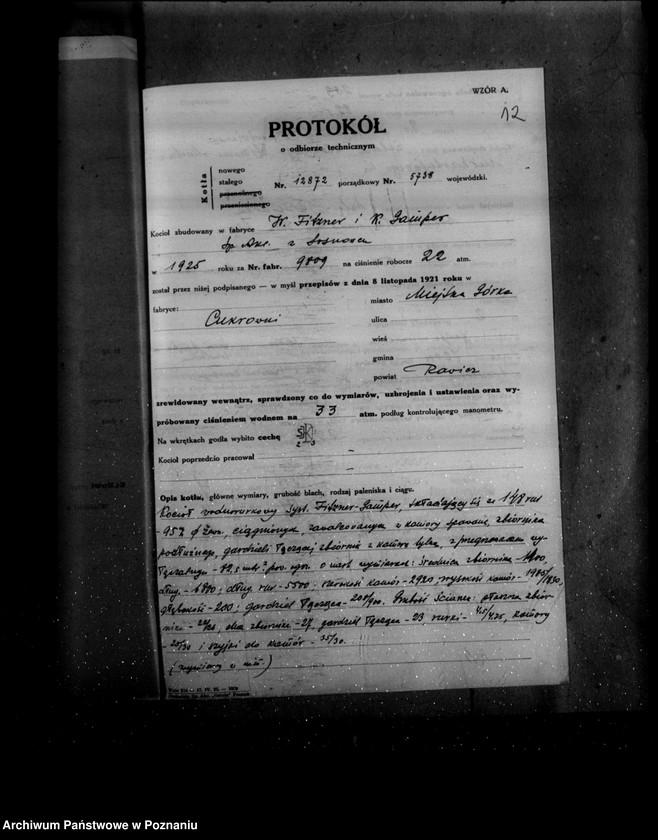 WZÓR A.
12
PROTOKÓŁ
o odbiorze technicznym
Kotła
nowego
stałego
przenośnego
przeniesionego
Nr. 12872 porządkowy Nr. 5738 wojewódzki.
Kocioł zbudowany w fabryce W. Fitzner i K. Gamper
Sp. Akc. z Sosnowca
w 1925 roku za Nr. fabr. 9809 na ciśnienie robocze 22 atm.
został przez niżej podpisanego — w myśl przepisów z dnia 8 listopada 1921 roku w
fabryce: Cukrowni
miasto Miejska Górka
ulica
wieś
gmina
powiat Rawicz
zrewidowany wewnątrz, sprawdzony co do wymiarów, uzbrojenia i ustawienia oraz wy-
próbowany ciśnieniem wodnem na 33 atm. podług kontrolującego manometru.
Na wkrętkach godła wybito cechę
Kocioł poprzednio pracował —
—
Opis kotła, główne wymiary, grubość blach, rodzaj paleniska i ciągu.
Kocioł wodnorurkowy syst. Fitzner-Gamper, składający się z 148 rur
ciągnionych, zawalcowanych w komory spawane, zbiornika
podłużnego, gardzieli łączącej zbiornik z komorą tylną, z przegrzewaczem
o nast. wymiarach: średnica zbiornika - 1400,
dług. - 6840; dług. rur - 5500; szerokość komór - 2920 wysokość komór -
głębokość - 200; gardziel łącząca - Grubość ścianek: płaszcz zbior-
nika - dna zbiornika - 27, gardziel łącząca - 23 rurki - komory
- 20/30 i szyjki do komór - 35/30.
(wymiary w mm)